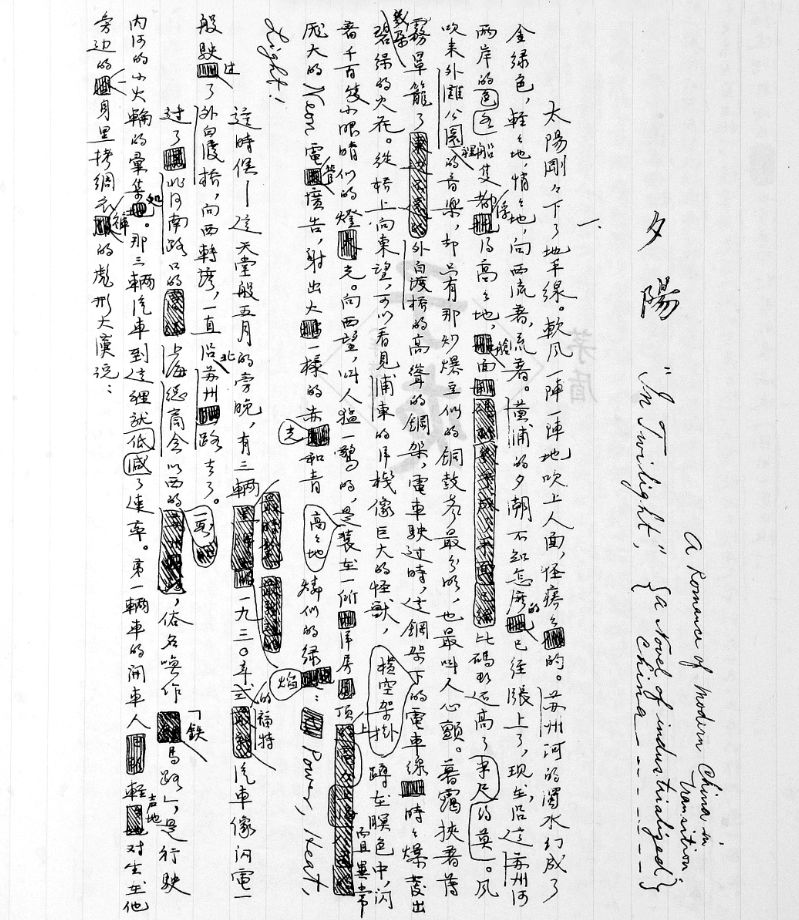 夕陽 "In Twilight", {a Novel of industrialized China ------}
A Romance of modern China in transition;
一、
太陽剛々下了地平線。軟风一陣一陣地吹上人面,怪癢々的。苏州河的濁水幻成了
金绿色,輕々地,悄々地,向西流着,流着。黄浦的夕潮不知怎的已经漲上了,現在沿這苏州河
兩岸的各色船隻都浮得高々地,艙面比碼头还高了半尺的莫。风
吹来外灘公園裡的音樂,却只有那炒爆豆似的銅鼓声最分明,也最叫人心顫。暮靄挟着薄
霧罩籠了外白渡桥的高聳的鋼架,電車駛过時,这鋼架下橫空架掛的電車線時々爆發出幾朵
碧绿的火花。從桥上向東望,可以看見浦東的洋栈像巨大的怪獸,蹲在暝色中,闪
着千百隻小眼睛似的燈光。向西望,叫人猛一驚的,是高々地装在一所洋房頂上而且異常
庞大的Neon電管廣告,射出火一樣的赤光和青燐似的绿焰:Power, Heat,
Light!
這時候——这天堂般五月的旁晚,有三輛一九三〇年式的福特汽車像闪電一
般駛过了外白渡桥,向西轉弯,一直沿北苏州路去了。
过了北河南路口的上海總商会以西的一段,俗名喚作「鉄馬路」,是行駛
内河的小火輪的彙集處。那三辆汽車到这裡就低減了速率。第一辆車的開車人輕声地对坐在他
旁边的身黑拷绸衣褲的彪形大漢说:
茅盾